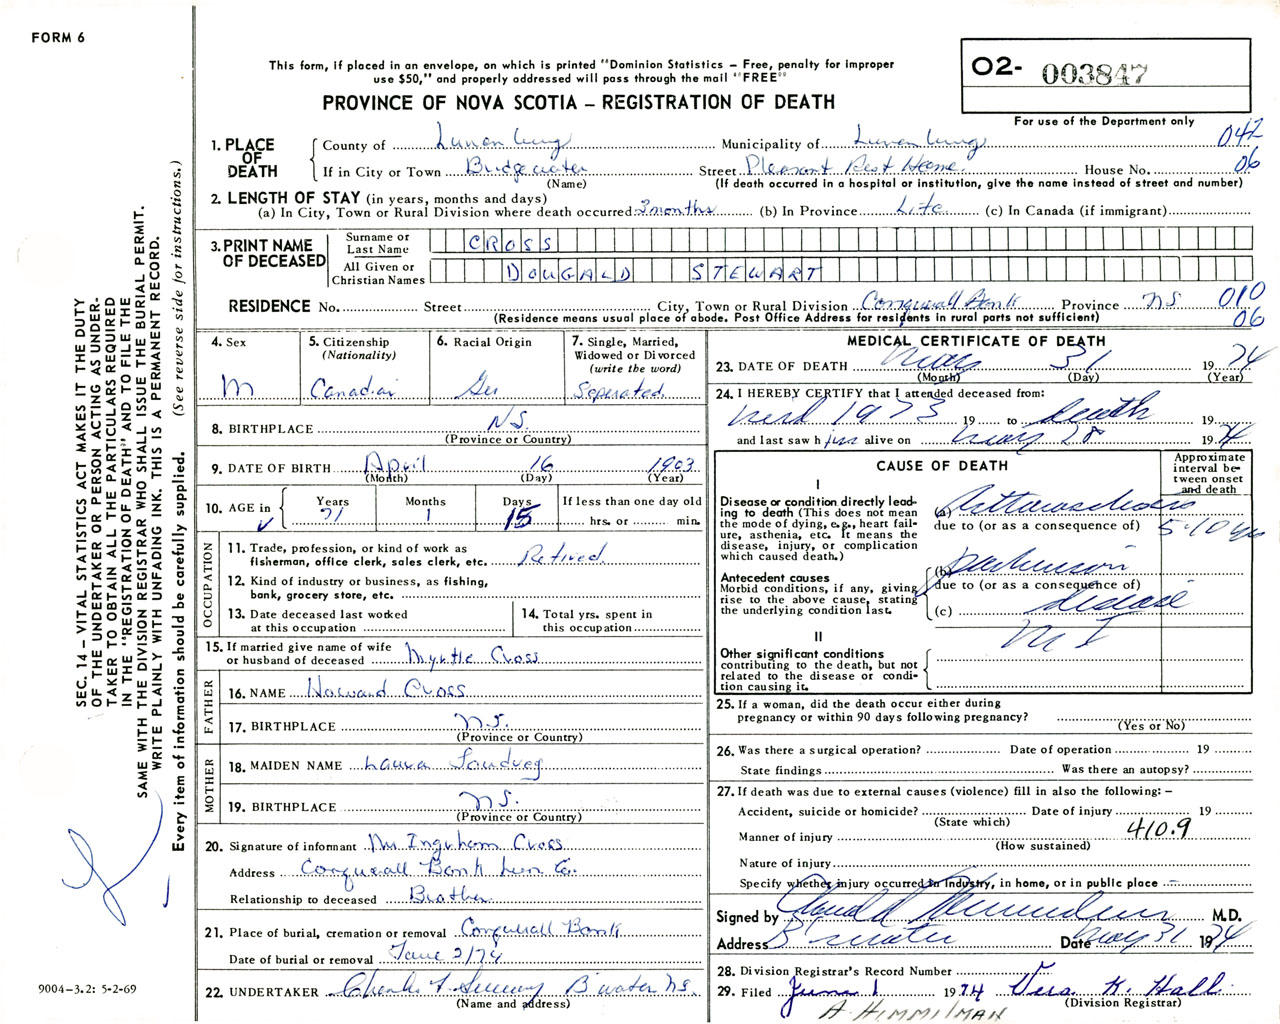 FORM 6
This form, if placed in an envelope, on which is printed "Dominion Statistics – Free, penalty for improper
use $50," and properly addressed will pass through the mail "FREE"
PROVINCE OF NOVA SCOTIA – REGISTRATION OF DEATH
O2- 003847
For use of the Department only
1. PLACE OF DEATH
County of Lunenburg Municipality of Lunenburg 042
If in City or Town Bridgewater Street Pleasant Rest Home House No. 06
(Name) (If death occurred in a hospital or institution, give the name instead of street and number)
2. LENGTH OF STAY (in years, months and days)
(a) In City, Town or Rural Division where death occurred 3 months (b) In Province Life (c) In Canada (if immigrant)
3. PRINT NAME OF DECEASED
Surname or Last Name CROSS
All Given or Christian Names DOUGALD STEWART
RESIDENCE No. Street City, Town or Rural Division Conquerall Bank Province NS 010
(Residence means usual place of abode. Post Office Address for residents in rural parts not sufficient) 06
4. Sex M
5. Citizenship (Nationality) Canadian
6. Racial Origin Ger
7. Single, Married, Widowed or Divorced (write the word) Seperated
8. BIRTHPLACE N.S.
(Province or Country)
9. DATE OF BIRTH April 16 1903
(Month) (Day) (Year)
10. AGE in Years 71 Months 1 Days 15 If less than one day old hrs. or min.
OCCUPATION
11. Trade, profession, or kind of work as fisherman, office clerk, sales clerk, etc. Retired
12. Kind of industry or business, as fishing, bank, grocery store, etc.
13. Date deceased last worked at this occupation
14. Total yrs. spent in this occupation
15. If married give name of wife or husband of deceased Myrtle Cross
FATHER
16. NAME Howard Cross
17. BIRTHPLACE N.S.
(Province or Country)
MOTHER
18. MAIDEN NAME Laura
19. BIRTHPLACE N.S.
(Province or Country)
20. Signature of informant Mr Ingraham Cross
Address Conquerall Bank Lun Co.
Relationship to deceased Brother
21. Place of burial, cremation or removal Conquerall Bank
Date of burial or removal June 2/74
22. UNDERTAKER B'water N.S.
(Name and address)
MEDICAL CERTIFICATE OF DEATH
23. DATE OF DEATH May 31 1974
(Month) (Day) (Year)
24. I HEREBY CERTIFY that I attended deceased from:
1973 19 to death 19
and last saw him alive on May 28 1974
CAUSE OF DEATH
Approximate interval between onset and death
I
Disease or condition directly leading to death (This does not mean the mode of dying, e.g., heart failure, asthenia, etc. It means the disease, injury, or complication which caused death.)
(a)
due to (or as a consequence of) 5-10 yrs
Antecedent causes
Morbid conditions, if any, giving rise to the above cause, stating the underlying condition last.
(b) Parkinson
due to (or as a consequence of)
(c) disease
M I
II
Other significant conditions contributing to the death, but not related to the disease or condition causing it.
25. If a woman, did the death occur either during pregnancy or within 90 days following pregnancy?
(Yes or No)
26. Was there a surgical operation? Date of operation 19
State findings Was there an autopsy?
27. If death was due to external causes (violence) fill in also the following: –
Accident, suicide or homicide? Date of injury 19
(State which)
Manner of injury 410.9
(How sustained)
Nature of injury
Specify whether injury occurred in Industry, in home, or in public place
Signed by M.D.
Address B'water Date May 31 1974
28. Division Registrar's Record Number
29. Filed June 1 1974 Vera K. Hall
(Division Registrar)
A HIMMILMAN
SEC. 14 – VITAL STATISTICS ACT MAKES IT THE DUTY
OF THE UNDERTAKER OR PERSON ACTING AS UNDER-
TAKER TO OBTAIN ALL THE PARTICULARS REQUIRED
IN THE "REGISTRATION OF DEATH" AND TO FILE THE
SAME WITH THE DIVISION REGISTRAR WHO SHALL ISSUE THE BURIAL PERMIT.
WRITE PLAINLY WITH UNFADING INK. THIS IS A PERMANENT RECORD.
Every item of information should be carefully supplied. (See reverse side for instructions.)
9004-3.2: 5-2-69